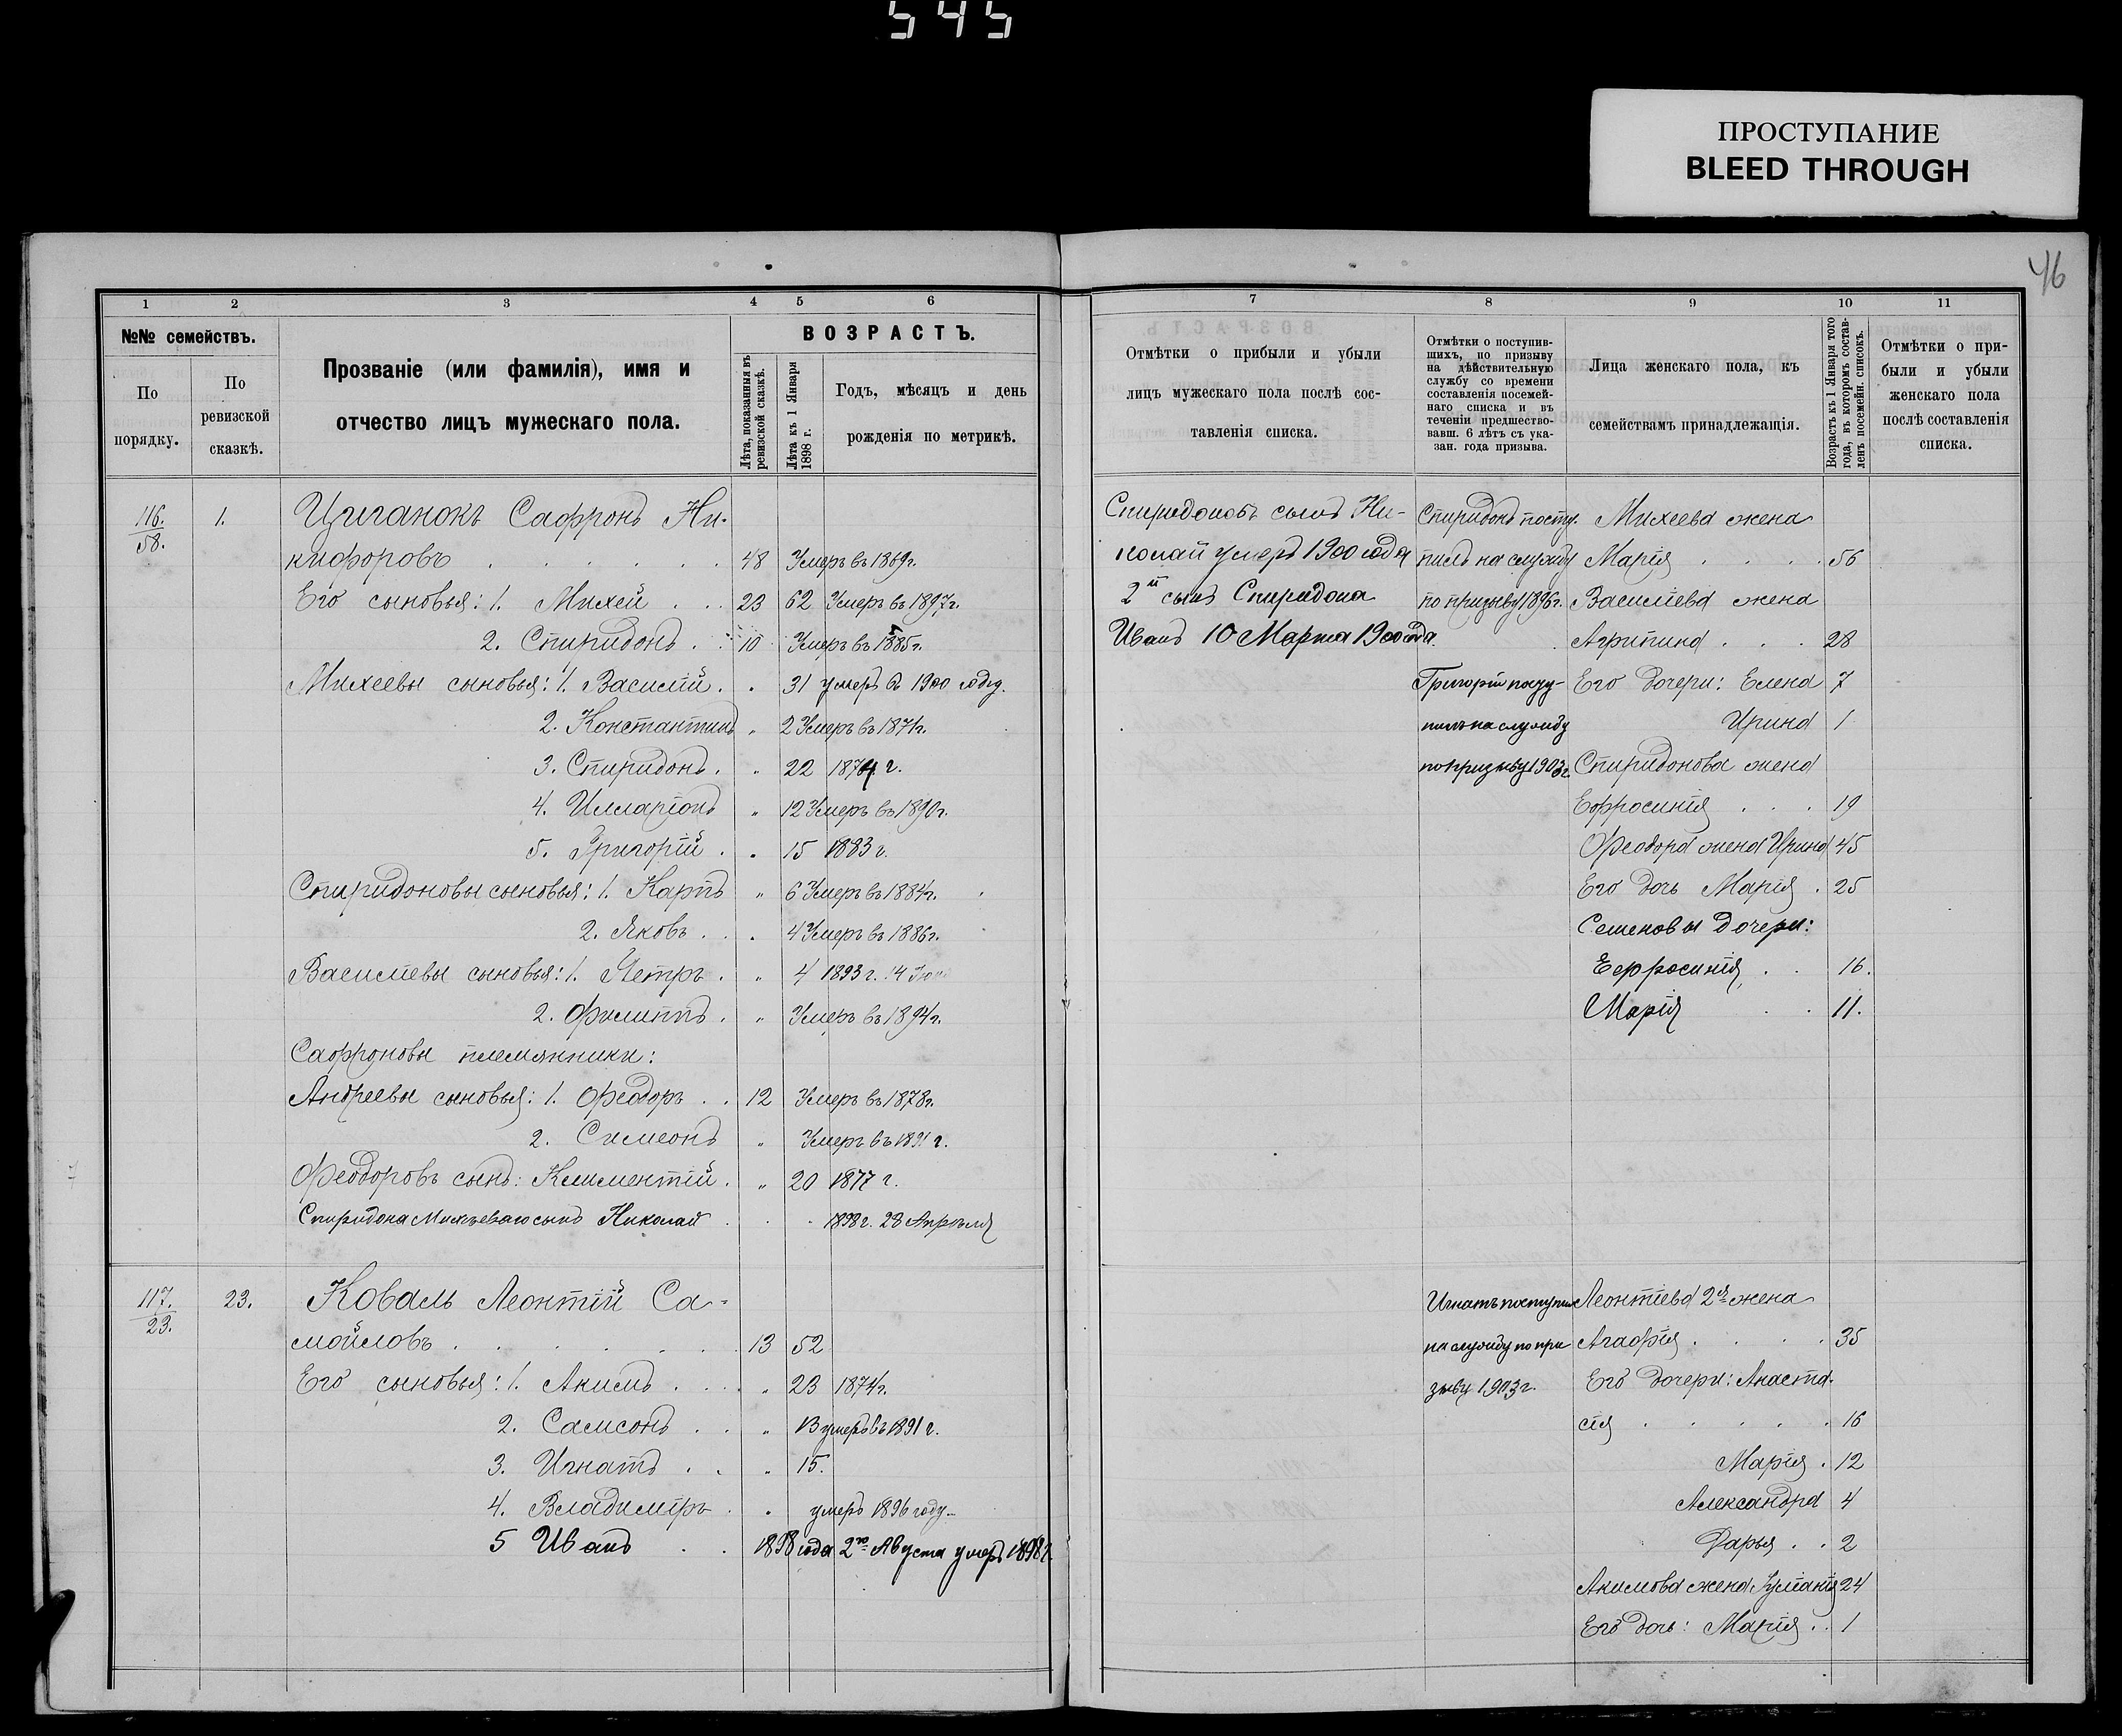 545
ПРОСТУПАНИЕ
BLEED THROUGH
46
1 2 3 4 5 6
№№ семействъ.
По порядку.
По ревизской сказкѣ.
Прозваніе (или фамилія), имя и
отчество лицъ мужескаго пола.
ВОЗРАСТЪ.
Лѣта, показанныя въ ревизской сказкѣ.
Лѣта къ 1 Января 1898 г.
Годъ, мѣсяцъ и день
рожденія по метрикѣ.
116. 1. Цыганокъ Сафронъ Ни-
58.
кифоровъ 48 Умеръ въ 1869г.
Его сыновья: 1. Михей 23 62 Умеръ въ 1897г.
2. Спиридонъ 10 Умеръ въ 1885г.
Михеевы сыновья: 1. Василій " 31 умеръ въ 1900 году.
2. Константинъ " 2 Умеръ въ 1871г.
3. Спиридонъ " 22 1874 г.
4. Илларіонъ " 12 Умеръ въ 1890г.
5. Григорій " 15 1883 г.
Спиридоновы сыновья: 1. Карпъ " 6 Умеръ въ 1884г.
2. Яковъ " 4 Умеръ въ 1886г.
Василіевы сыновья: 1. Петръ " 4 1893 г. 14
2. Филиппъ " Умеръ въ 1894г.
Сафроновы племянники:
Андреевы сыновья: 1. Феодоръ 12 Умеръ въ 1878г.
2. Симеонъ " Умеръ въ 1891 г.
Феодоровъ сынъ: Климентій " 20 1877 г.
Спиридона Михѣеваго сынъ Николай 1898 г. 23 Апрѣля
117. 23. Коваль Леонтій Са-
23.
мойловъ 13 52
Его сыновья: 1. Акимъ " 23 1874г.
2. Самсонъ " 13 умеръ въ 1891 г.
3. Игнатъ " 15.
4. Владиміръ " умеръ 1896 году
5 Иванъ 1898 года 2го Августа умеръ 1898г.
7 8 9 10 11
Отмѣтки о прибыли и убыли
лицъ мужескаго пола послѣ сос-
тавленія списка.
Отмѣтки о поступив-
шихъ, по призыву
на дѣйствительную
службу со времени
составленія посемей-
наго списка и въ
теченіи предшество-
вавш. 6 лѣтъ съ ука-
зан. года призыва.
Лица женскаго пола, къ
семействамъ принадлежащія.
Возрастъ къ 1 Января того
года, въ которомъ состав-
ленъ посемейн. списокъ.
Отмѣтки о при-
были и убыли
женскаго пола
послѣ составленія
списка.
Спиридоновъ сынъ Ни-
колай умеръ 1900 года
2й сынъ Спиридона
Иванъ 10 Марта 1900 года.
Спиридонъ посту-
пилъ на службу
по призыву 1896г.
Григорій посту-
пилъ на службу
по призыву 1903г.
Михеева жена
Марія 56
Василіева жена
Агрипина 28
Его дочери: Елена 7
Ирина 1
Спиридонова жена
Ефросинія 19
Феодора жена Ирина 45
Его дочь Марія 25
Семеновы дочери:
Ефросинія 16.
Марія 11.
Игнатъ поступил
на службу по при
зыву 1903г.
Леонтіева 2я жена
Агафія 35
Его дочери: Анаста-
сія 16
Марія 12
Александра 4
Дарья 2
Акимова жена Іуліанія 24
Его дочь: Марія 1